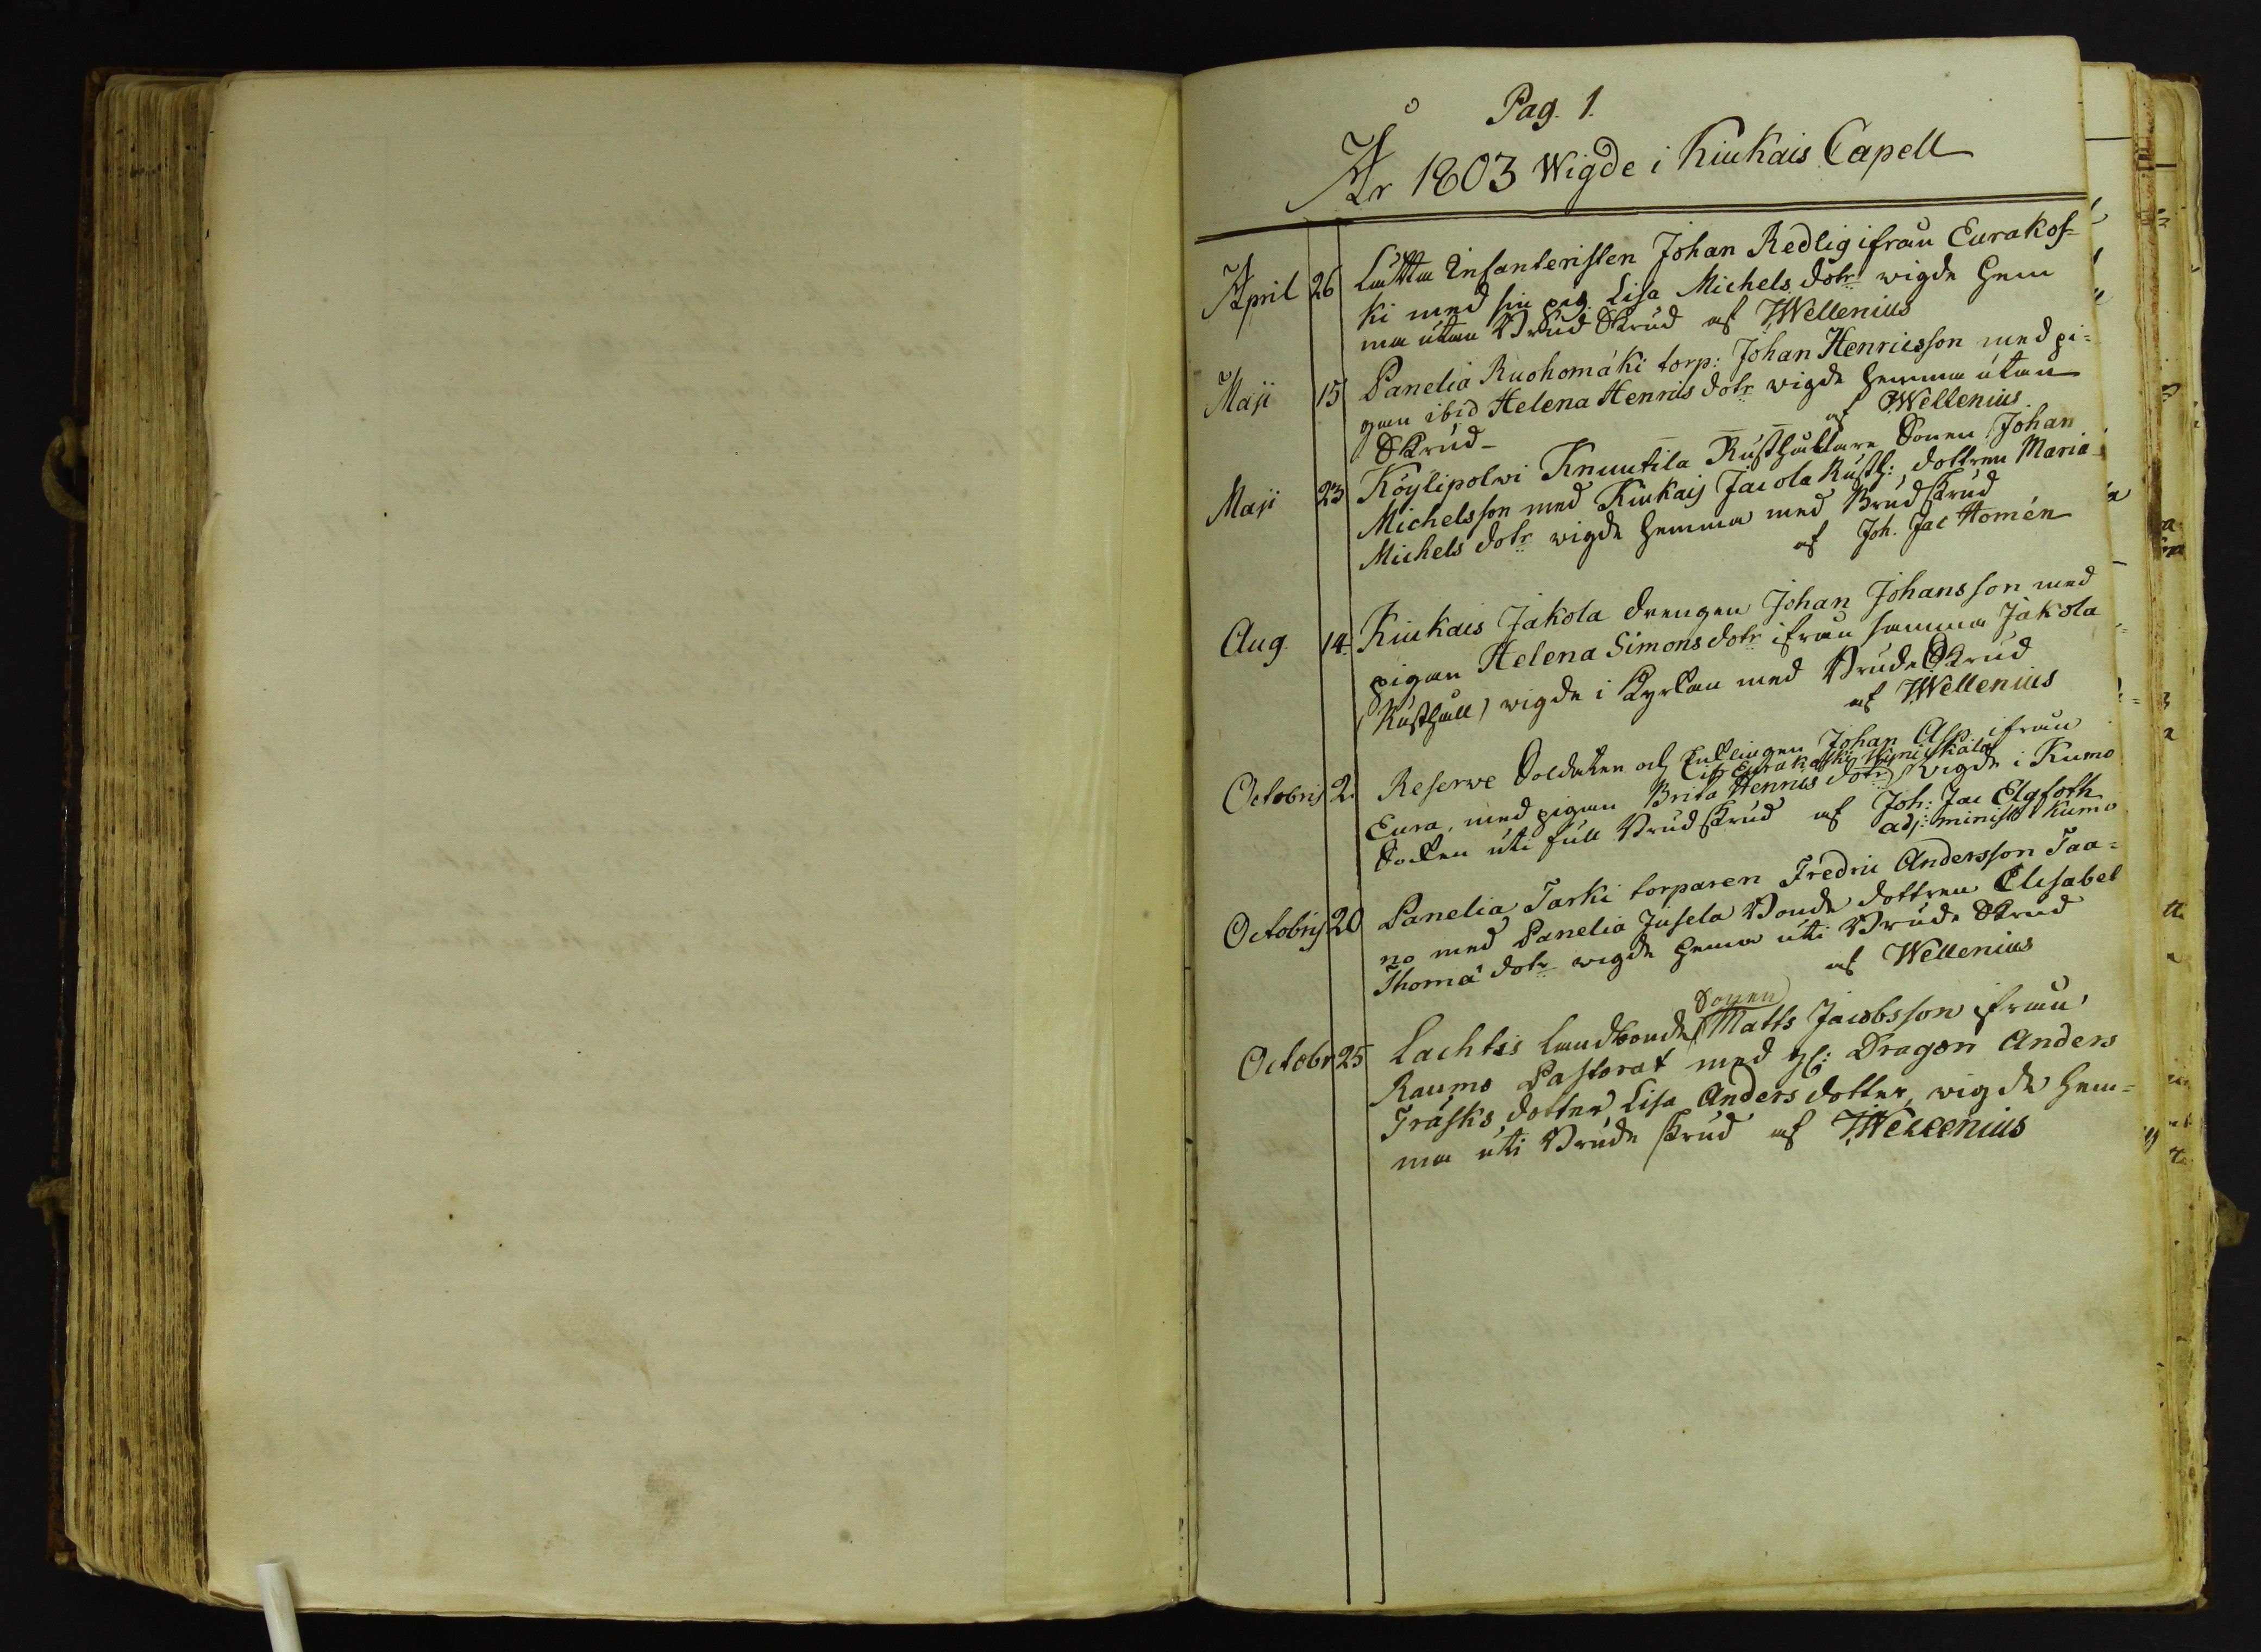 Pag. 1.
År 1803 Wigde i Kiukais Capell
April 26 Lätta Infanteristen Johan Redlig ifrån Eurakos=
ki med sin pig. Lisa Michels dotr wigde hem
ma utan Brud Skrud af JWellenius
Maji 15 Panelia Ruohomäki torp: Johan Henricsson med pi=
gan ibid Helena Henrics dotr wigde hemma utan
Skrud – af JWellenius
Maji 23 Köylipolwi Knuutila Rusthållare Sonen Johan
Michelsson med Kiukais Jacola Rusth: dottren Maria
Michels dotr wigde hemma med Brudskrud
af Joh. Jac Homén
Aug. 14. Kiukais Jakola drengen Johan Johansson med
pigan Helena Simons dotr ifrån samma Jakola
Rusthåll) wigde i Kyrkan med Brude Skrud
af JWellenius
Octobris 2. Reserve Soldaten och Enklingen Johan Asp ifrån
Eura, med pigan Brita Henrics dotr wigde i Kumo
Socken uti full Brudskrud af Joh: Jac Elgfoth
adj: minist Kumo
Octobris 20 Panelia Tarki torparen Fredric Andersson Taa=
no med Panelia Jusela Bonde dottren Elisabet
Thomæ dotr wigde hemma uti Brude Skrud
af Wellenius
Sonen
Octobr 25 Lachtis Landbonde Matts Jacobsson ifrån
Raumo Pastorat med gl: Dragon Anders
Träsks dotter Lisa Anders dotter, wigde hem=
ma uti Brude skrud af JWellenius